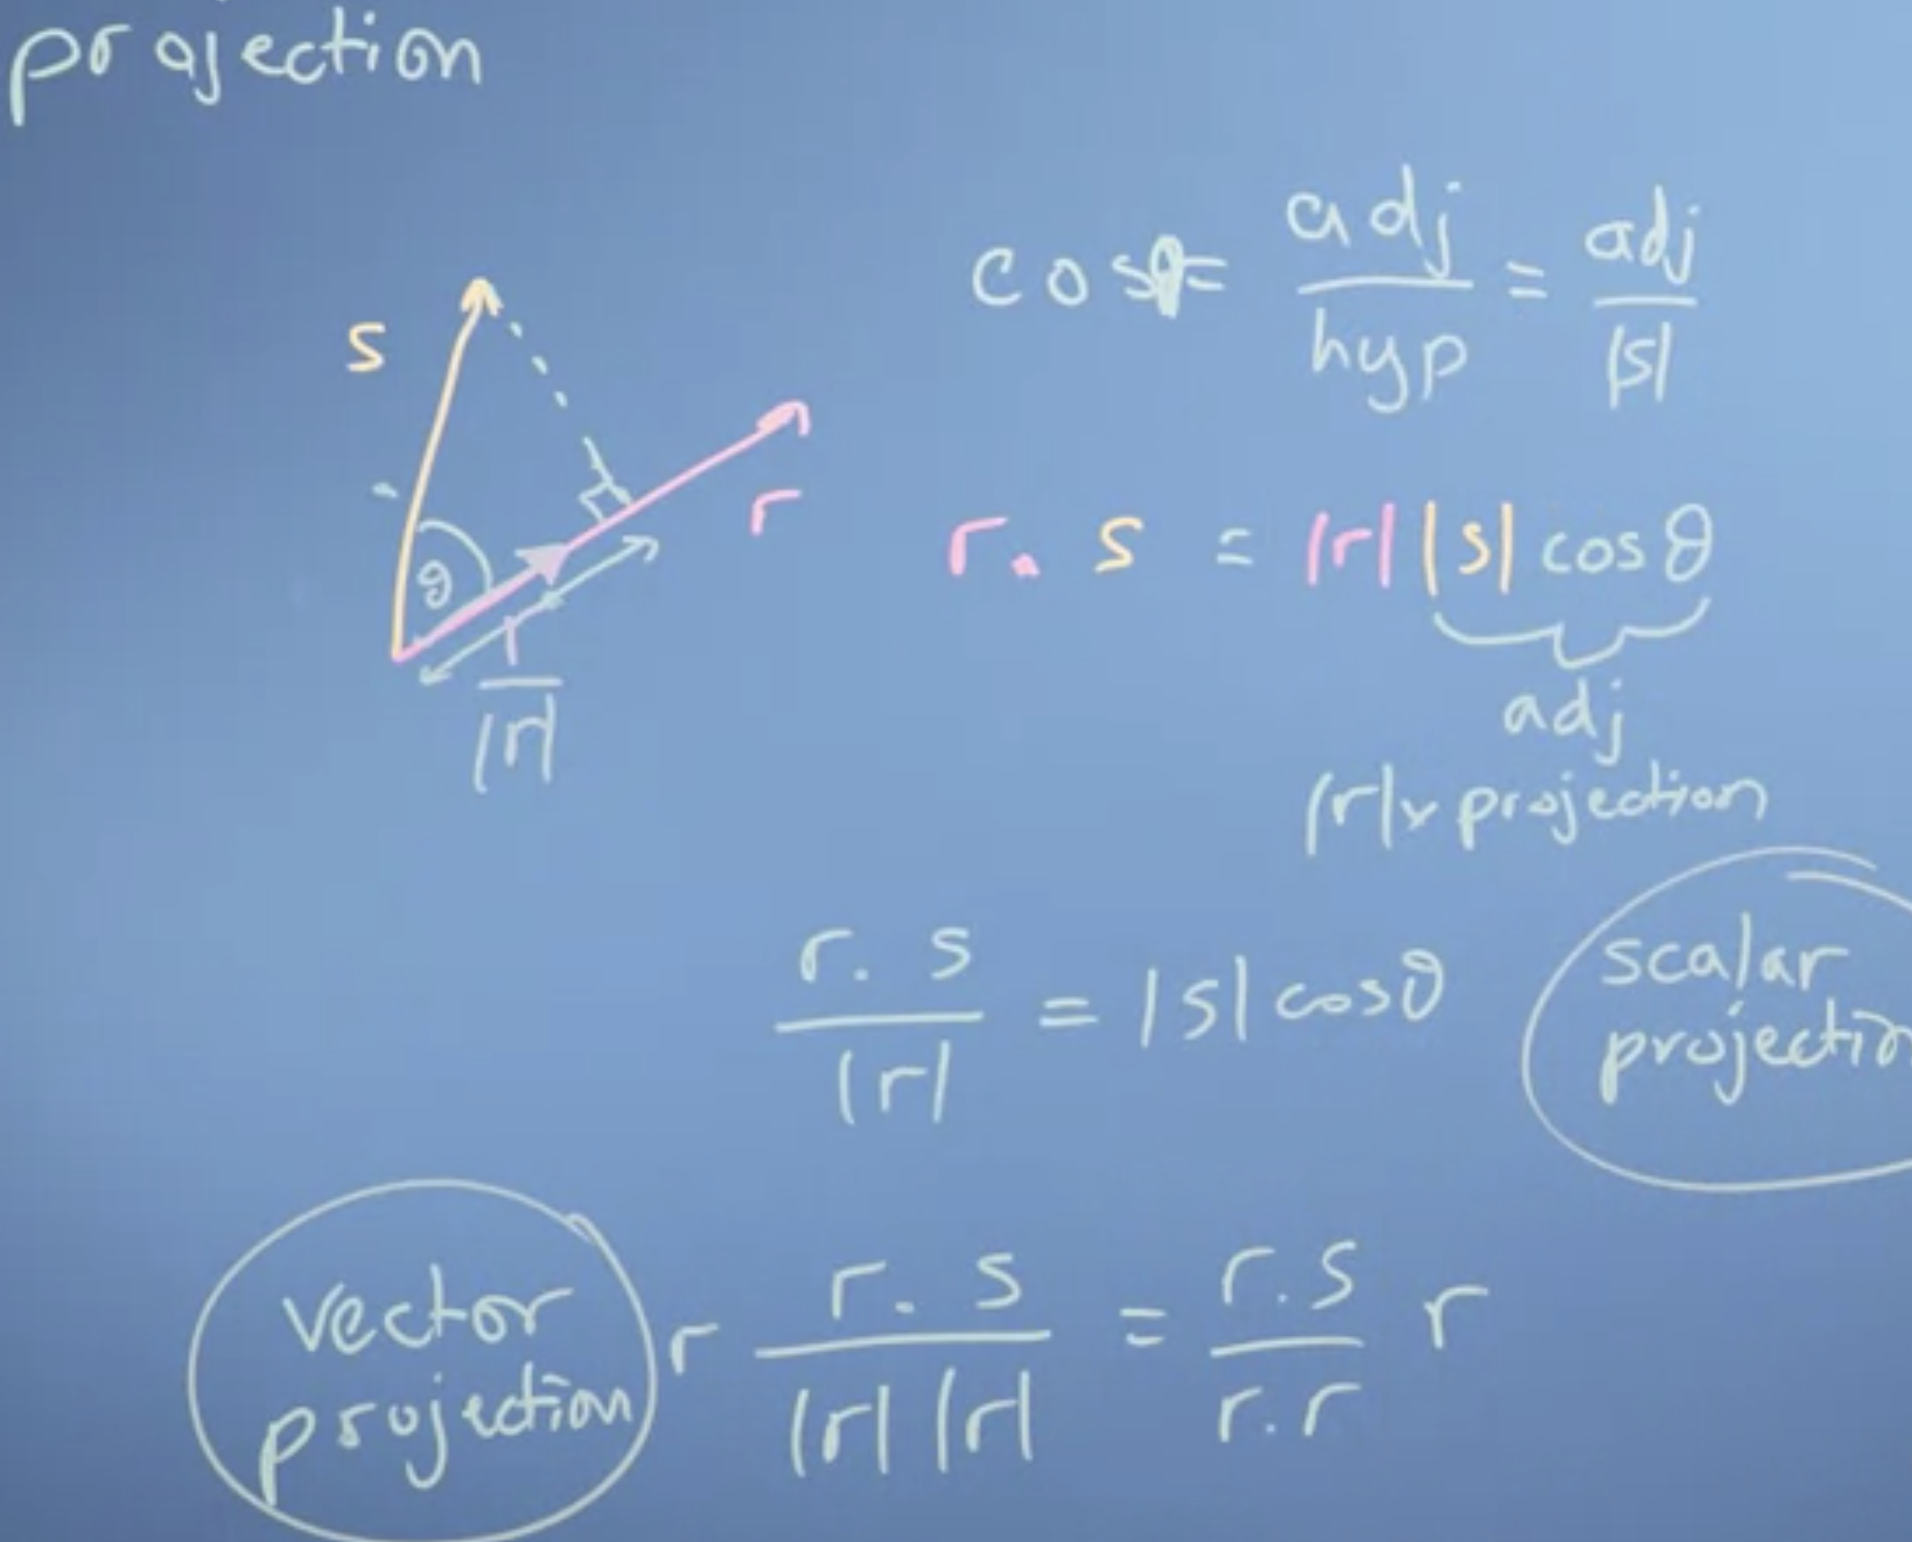 projection
cosθ= adj/hyp = adj/|s|
s
r
θ
r/|r|
r. s = |r||s|cosθ
adj
|r|x projection
r. s/|r| = |s|cosθ
scalar
projection
vector
projection
r r. s/|r||r| = r.s/r.r r